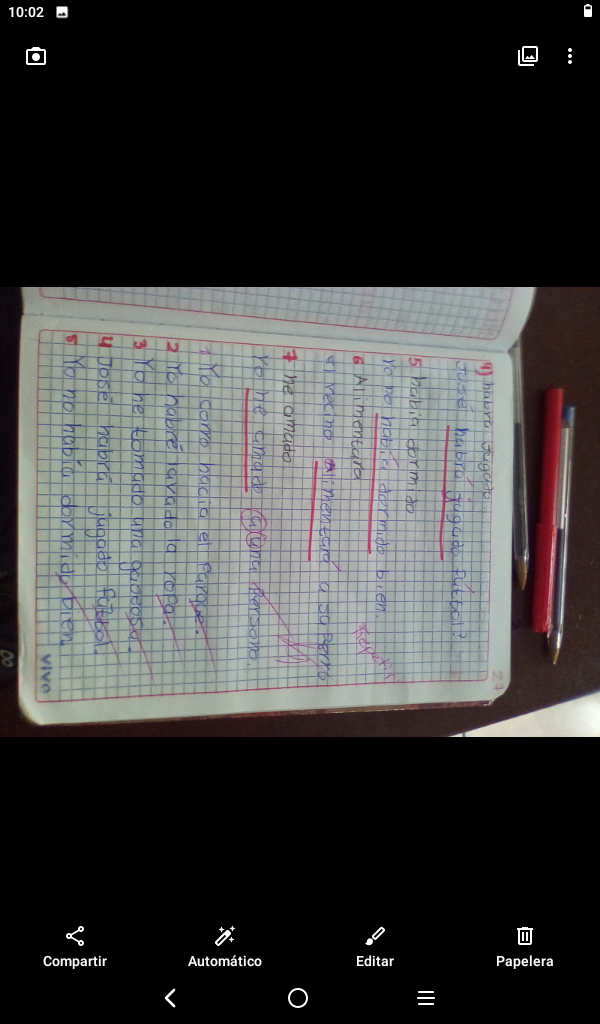 10:02
27
4) habrá jugado.
José habrá jugado fútbol?
5 había dormido
Yo no había dormido bien
Repetir
6 Alimentara
el vecino alimentará a su perro
7 he amado.
Yo he amado a una persona.
1 Yo corro hacia el parque.
2 Yo habré lavado la ropa.
3 Yo he tomado una gaseosa.
4 José habrá jugado fútbol.
5 Yo no había dormido bien.
VIVO
Compartir
Automático
Editar
Papelera